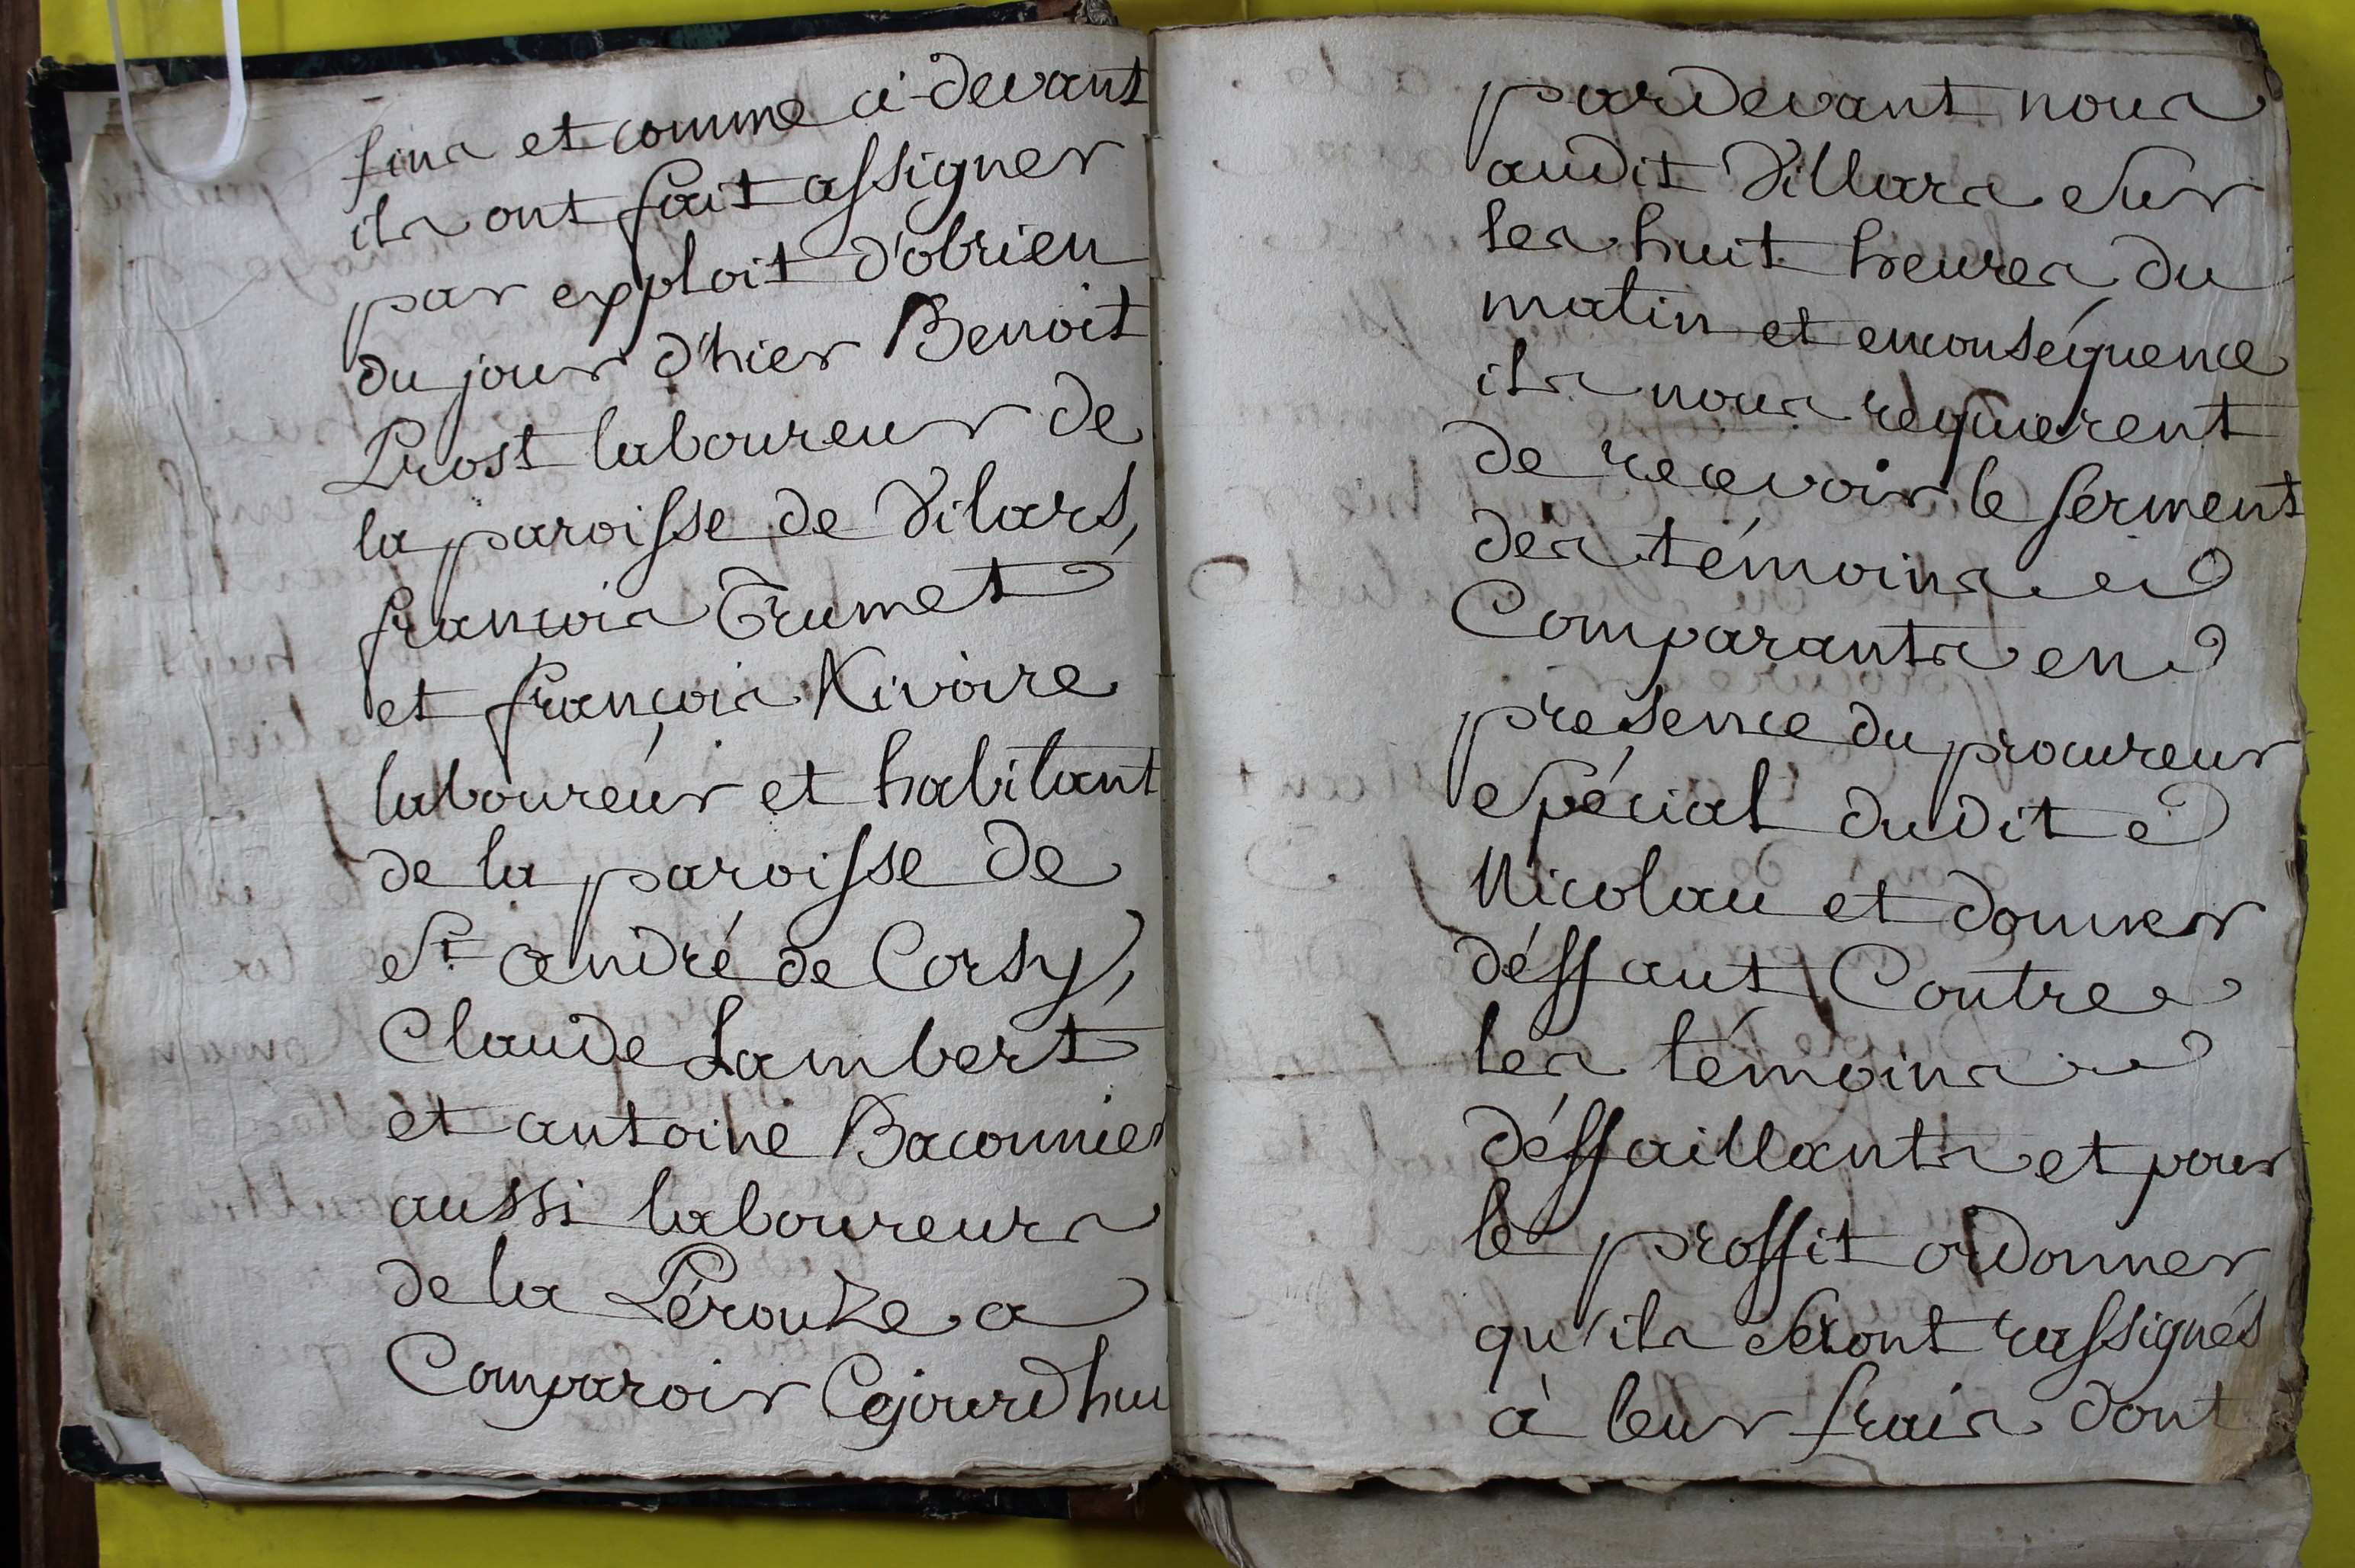 fins et comme ci-devant
ils ont fait assigner
par exploit d'obrien
du jour d'hier Benoit
Prost laboureur de
la paroisse de Vilars,
francois Trumet
et françois Nivoire
laboureur et habitant
de la paroisse de
St andré de Corsy,
Claude Lambert
et antoine Baconnier
aussi laboureurs
de la Pérouze a
Comparoir Cejourdhui
pardevant nous
audit Villars Sur
les huit heures du
matin et enconséquence
ils nous requierent
de recevoir le serment
des témoins
Comparants en
presence du procureur
Spécial dudit
Nicolau et donner
déffaut Contre
les témoins
déffaillants et pour
le proffit ordonner
qu'ils Seront rassignés
à leur frais dont